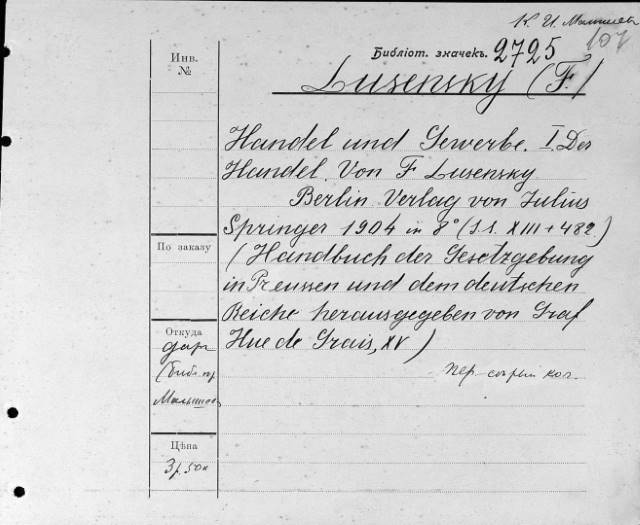 К. И. Малышев
107
Библіот. значекъ. 2725
Lusensky (F.)
Инв.
№
Handel und Gewerbe. I. Der
Handel. Von F. Lusensky
Berlin Verlag von Julius
Springer 1904 in 8° (S.S. XIII + 482.)
(Handbuch der Gesetzgebung
in Preussen und dem deutschen
Reiche herausgegeben von Graf
Hue de Grais, XV)
По заказу
Откуда
дар
(Библ.
Малышев
пер. кол.
Цѣна
3 р. 50 к